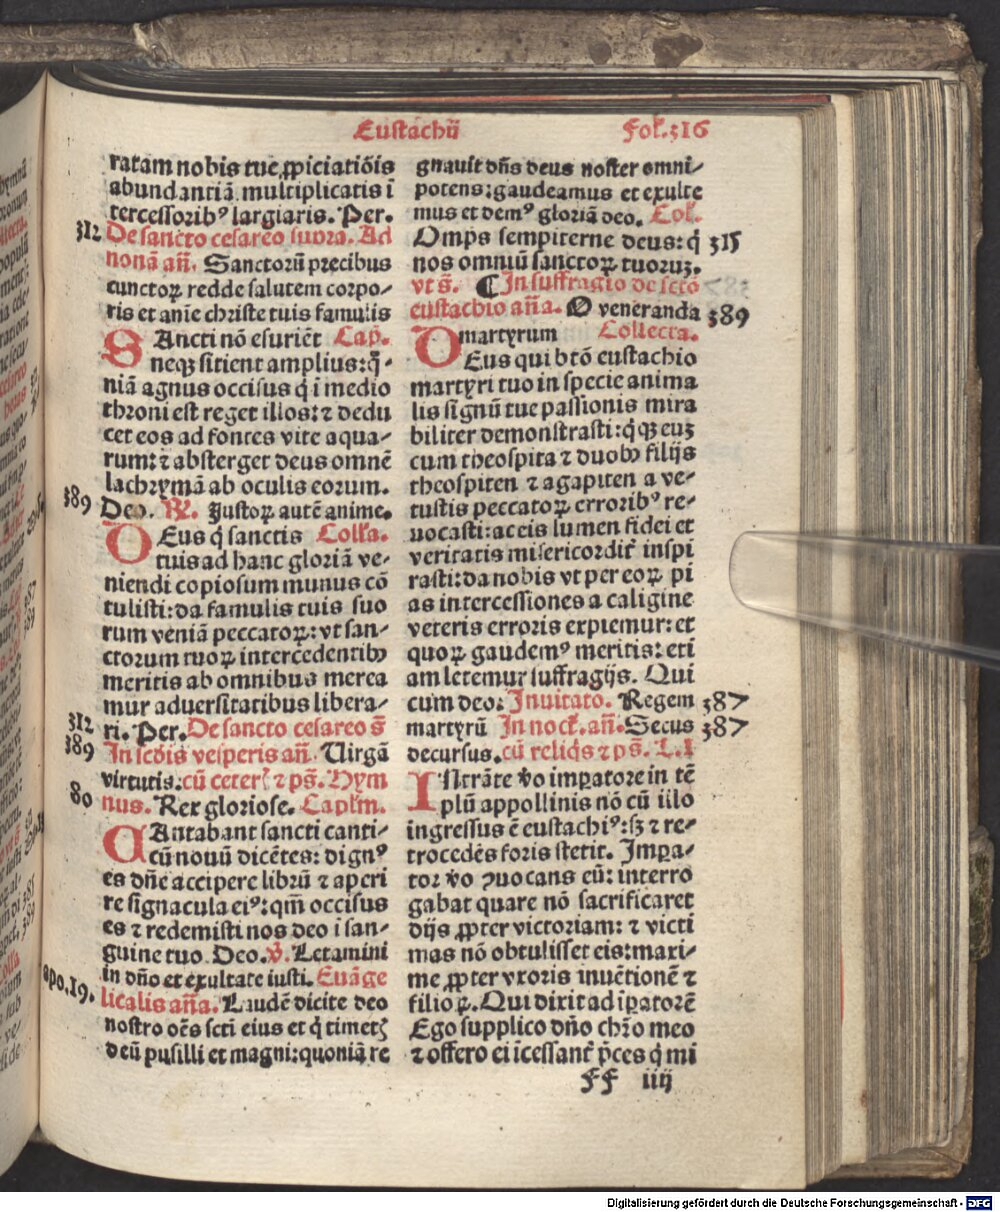 Eustachij
Fol. 316
ratam nobis tue ꝓpiciatiōis
abundantiā multiplicatis ī
tercessoribꝰ largiaris. Per.
312 De sancto cesareo supra. Ad
nonā añ. Sanctorū precibus
cunctoꝝ redde salutem corpo-
ris et anie christe tuis famulis
SAncti nō esuriēt Cap̄.
neqꝫ sitient amplius: q̄-
niā agnus occisus q̇ i medio
throni est reget illos: ⁊ dedu
cet eos ad fontes vite aqua-
rum: ⁊ absterget deus omnē
lachrymā ab oculis eorum.
389 Deo. ℟. Justoꝝ autē anime.
DEus q̇ sanctis Coll'a.
tuis ad hanc gloriā ve-
niendi copiosum munus cō
tulisti: da famulis tuis suo
rum veniā peccatoꝝ: vt san-
ctorum tuoꝝ intercedentibꝰ
meritis ab omnibus merea
mur aduersitatibus libera-
312 ri. Per. De sancto cesareo s̄
389 In scd̄is vesperis añ. Uirgā
virtutis. cū ceterꝭ ⁊ ps̄. Hym
80 nus. Rex gloriose. Capl'm.
CAntabant sancti canti-
cū nouū dicētes: dignꝰ
es dñe accipere librū ⁊ aperi
re signacula eiꝰ: qm̄ occisus
es ⁊ redemisti nos deo i san-
guine tuo. Deo. ℣. Letamini
in dño et exultate iusti. Euāge
apo.19. licalis aña. Laudē dicite deo
nostro oēs scti eius et q̇ timetꝭ
deū pusilli et magni: quoniā re
gnauit dñs deus noster omni-
potens: gaudeamus et exulte
mus et demꝰ gloriā deo. Col'.
Omps sempiterne deus: q̇ 315
nos omniū sanctoꝝ tuoruꝫ.
vt s̄. ¶ In suffragio de scto
eustachio aña. O veneranda 389
martyrum Collecta.
DEus qui btō eustachio
martyri tuo in specie anima
lis signū tue passionis mira
biliter demonstrasti: q̇qꝫ euꝫ
cum theospita ⁊ duobꝰ filijs
theospiten ⁊ agapiten a ve-
tustis peccatoꝝ erroribꝰ re-
uocasti: accis lumen fidei et
veritatis misericordit̄ inspi
rasti: da nobis vt per eoꝝ pi
as intercessiones a caligine
veteris erroris expiemur: et
quoꝝ gaudemꝰ meritis: eti
am letemur suffragijs. Qui
cum deo. Inuitato. Regem 387
martyrū In noct. añ. Secus 387
decursus. cū reliq̇s ⁊ ps̄. L.I
IStrāte v̄o impatore in tē
plū appollinis nō cū illo
ingressus ē eustachiꝰ: sꝫ ⁊ re-
trocedēs foris stetit. Impa-
tor v̄o ꝯuocans eū: interro
gabat quare nō sacrificaret
dijs ꝓpter victoriam: ⁊ victi
mas nō obtulisset eis: maxi-
me ꝓpter vxoris inuētionē ⁊
filioꝝ. Qui dixit ad ipatorē
Ego supplico dño chr̄o meo
⁊ offero ei icessant̄ p̄ces q̇ mi
FF iiij
Digitalisierung gefördert durch die Deutsche Forschungsgemeinschaft - DFG